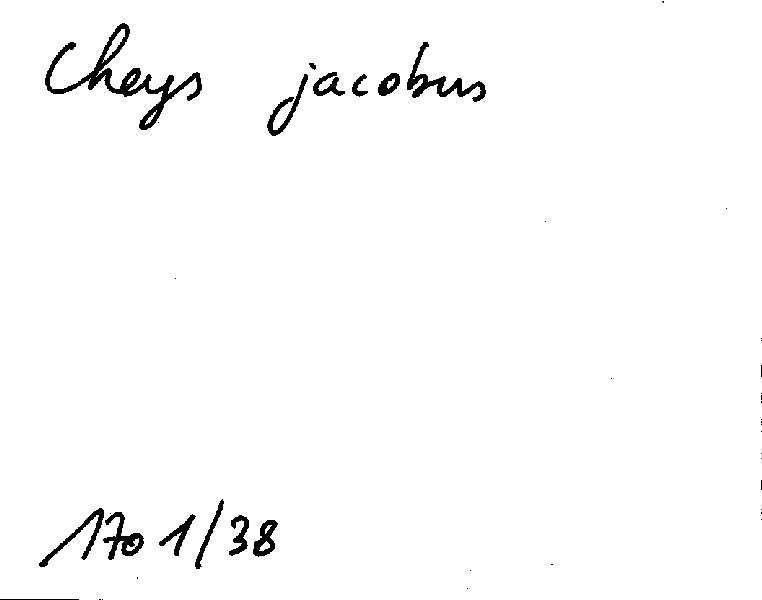 Cheys jacobus
1701/38